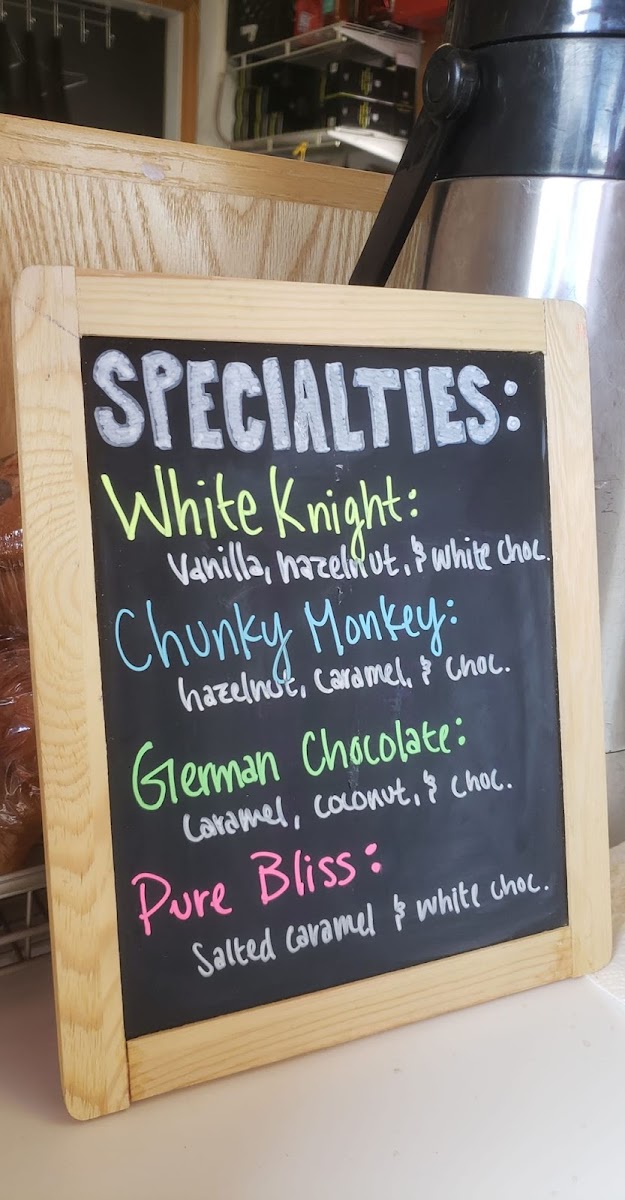 SPECIALTIES:
White Knight:
Vanilla, hazelnut, & white choc.
Chunky Monkey:
hazelnut, caramel, & choc.
German Chocolate:
caramel, coconut, & choc.
Pure Bliss:
Salted caramel & white choc.